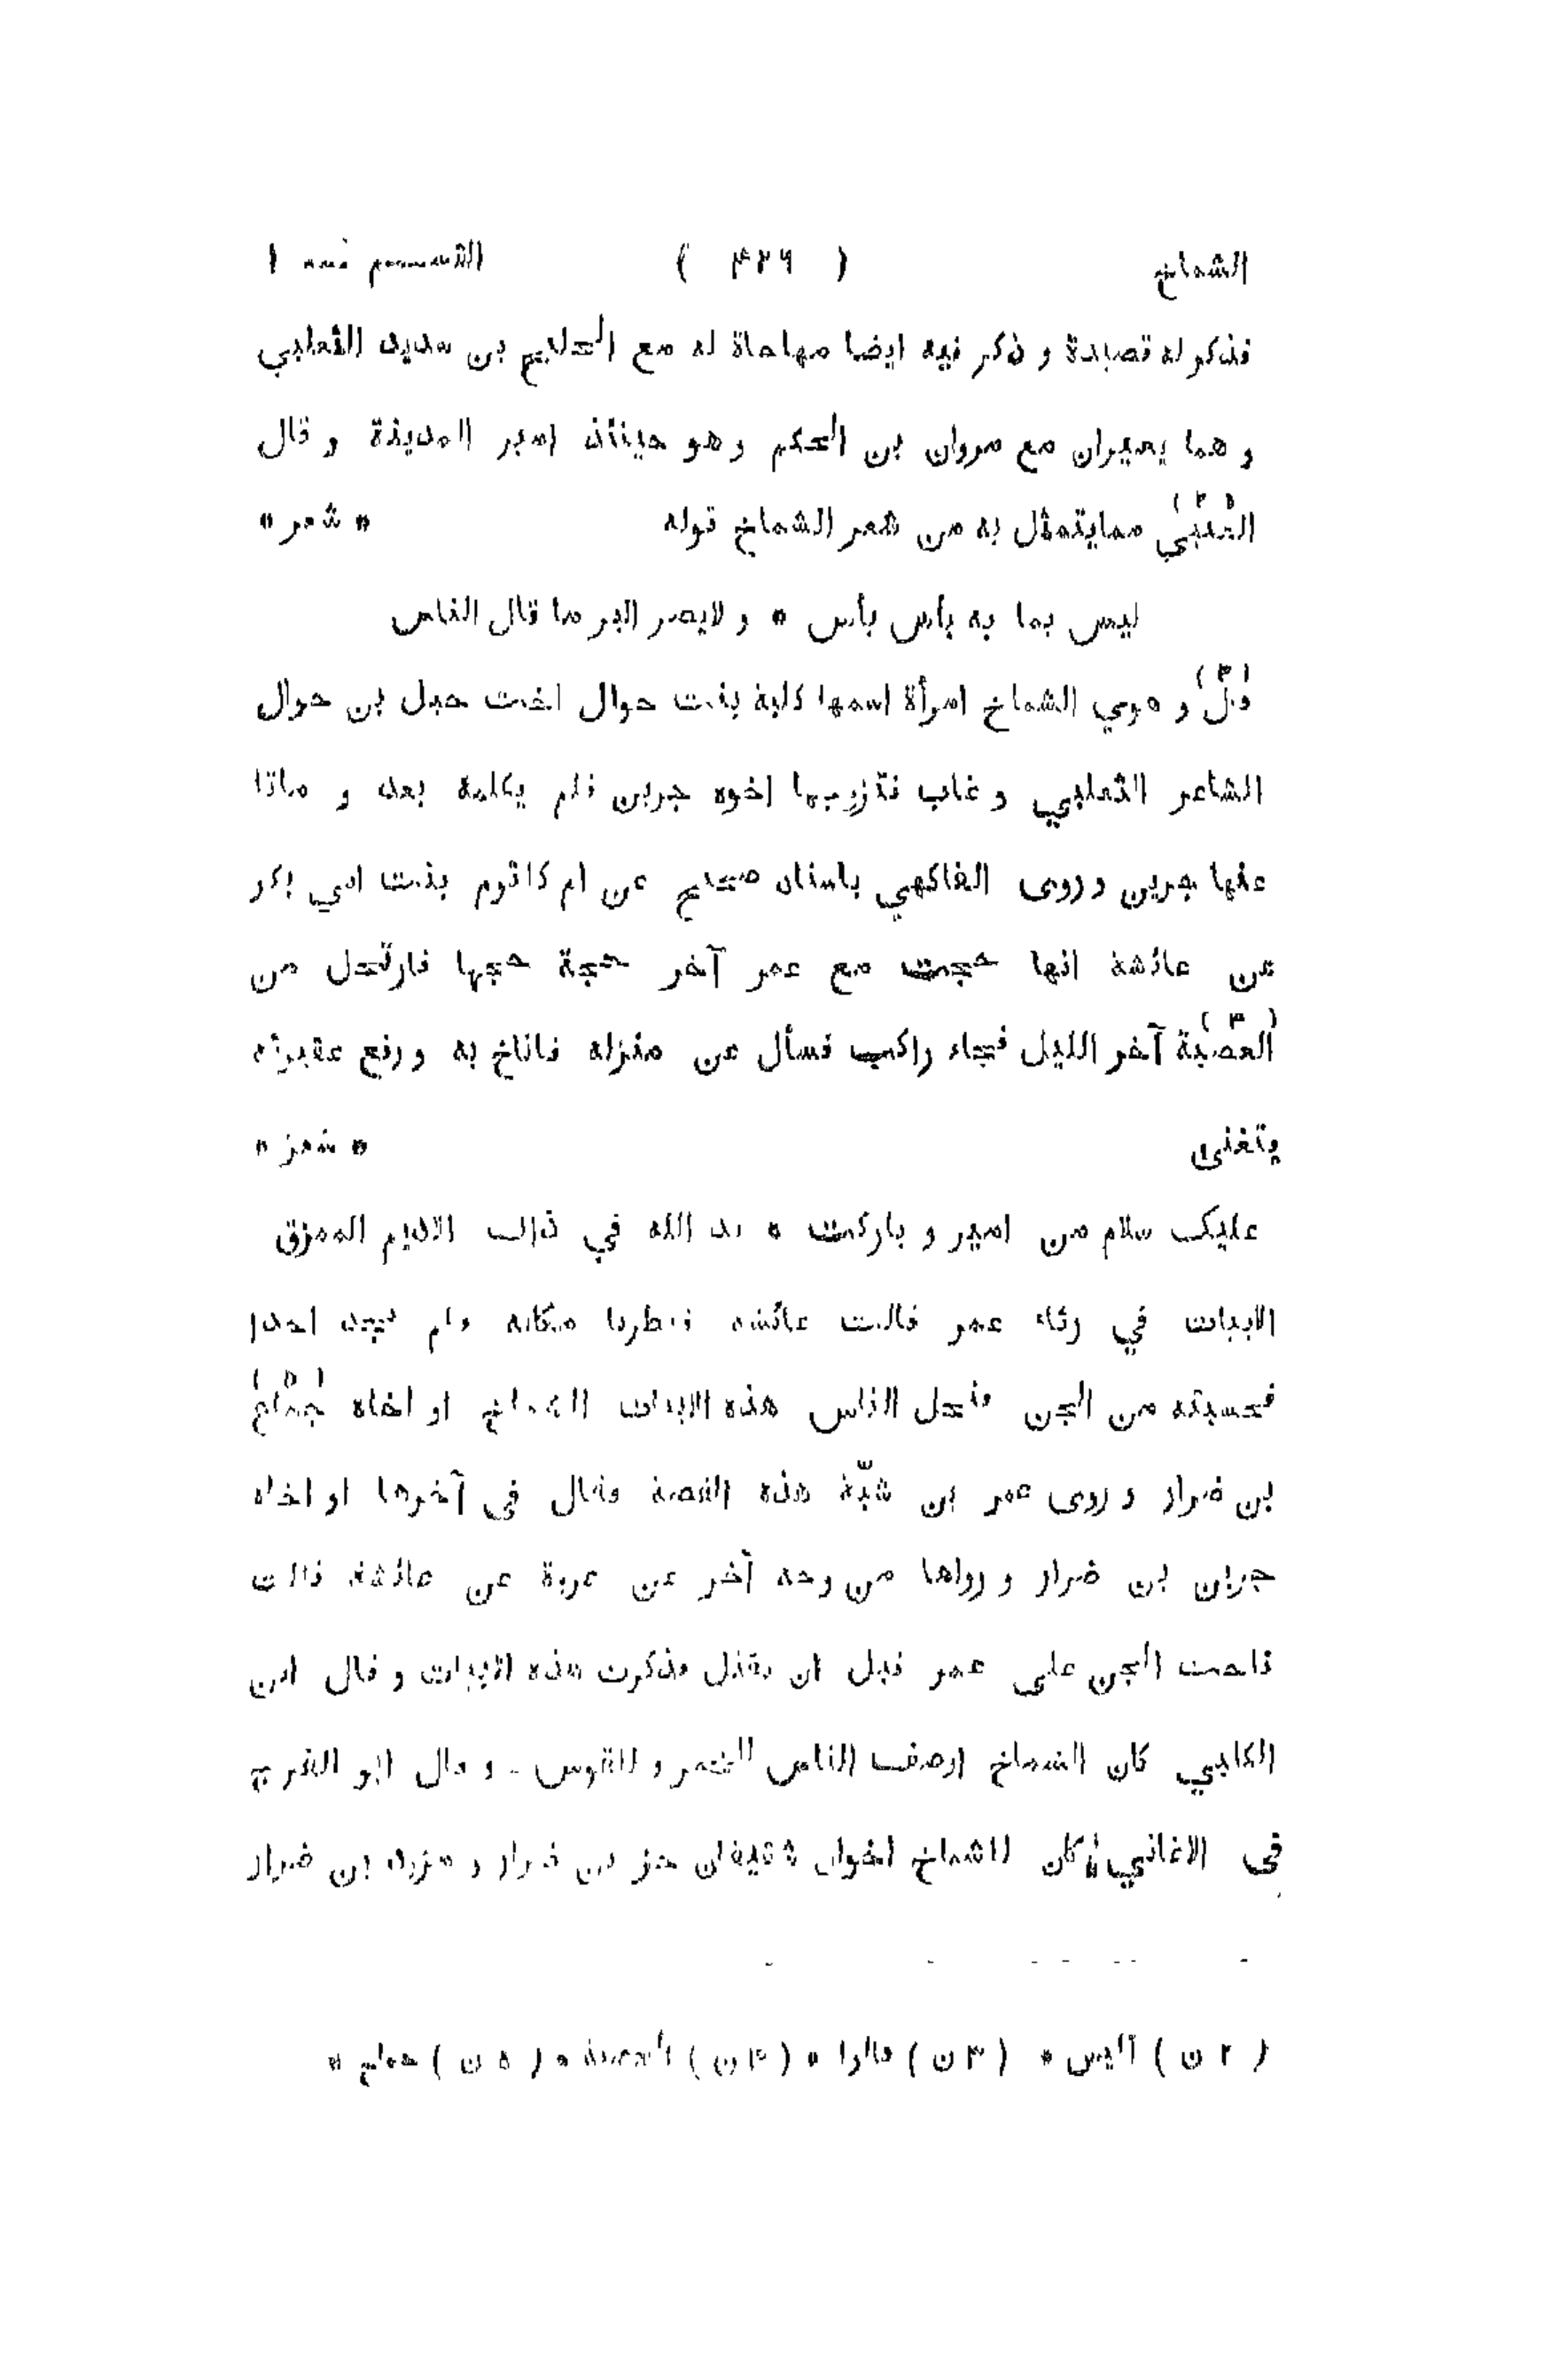 الشماخ ( ۴۲۹ ) القسم ١
فذكر له قصيدة و ذكر فيه ايضا مهاجاة له مع الجليح بن سديد الثعلبي
و هما يسيران مع مروان بن الحكم وهو حينئذ امير المدينة و قال
(٢) العتبي ممايتمثل به من شعر الشماخ قوله * شعر *
ليس بما به بأس بأس * و لايضر البر ما قال الناس
(٣) و هوي الشماخ امرأة اسمها كلبة بنت جوال اخت جبل بن جوال
الشاعر الثعلبي و غاب فتزوجها اخوه جزين فلم يكلمه بعد و ماتا
عنها جزين و روى الفاكهي باسناد صحيح عن ام كلثوم بنت ابي بكر
عن عائشة انها حجت مع عمر آخر حجة حجها فارتحل من
(۴) الحصبة آخر الليل فجاء راكب فسأل عن منزله فاناخ به و رفع عقيرته
يتغنى * شعر *
عليك سلام من امير و باركت * يد الله في ذاك الاديم الممزق
الابيات في رثاء عمر قالت عائشة فنظرنا مكانه ولم نجد احدا
فحسبته من الجن فنحل الناس هذه الابيات الشماخ او اخاه (٥) جماع
بن ضرار و روى عمر بن شبّة هذه القصة و قال في آخرها او اخاه
جزين بن ضرار و رواها من وجه آخر عن عروة عن عائشة قالت
ناحت الجن على عمر قبل ان يقتل فذكرت هذه الابيات و قال ابن
الكلبي كان الشماخ اوصف الناس للخمر و للقوس - و قال ابو الفرج
في الاغاني كان للشماخ اخوان شقيقان جز بن ضرار و مزرد بن ضرار
( ٢ ن ) اليس * ( ٣ ن ) قالوا * ( ۴ ن ) * ( ٥ ن ) *